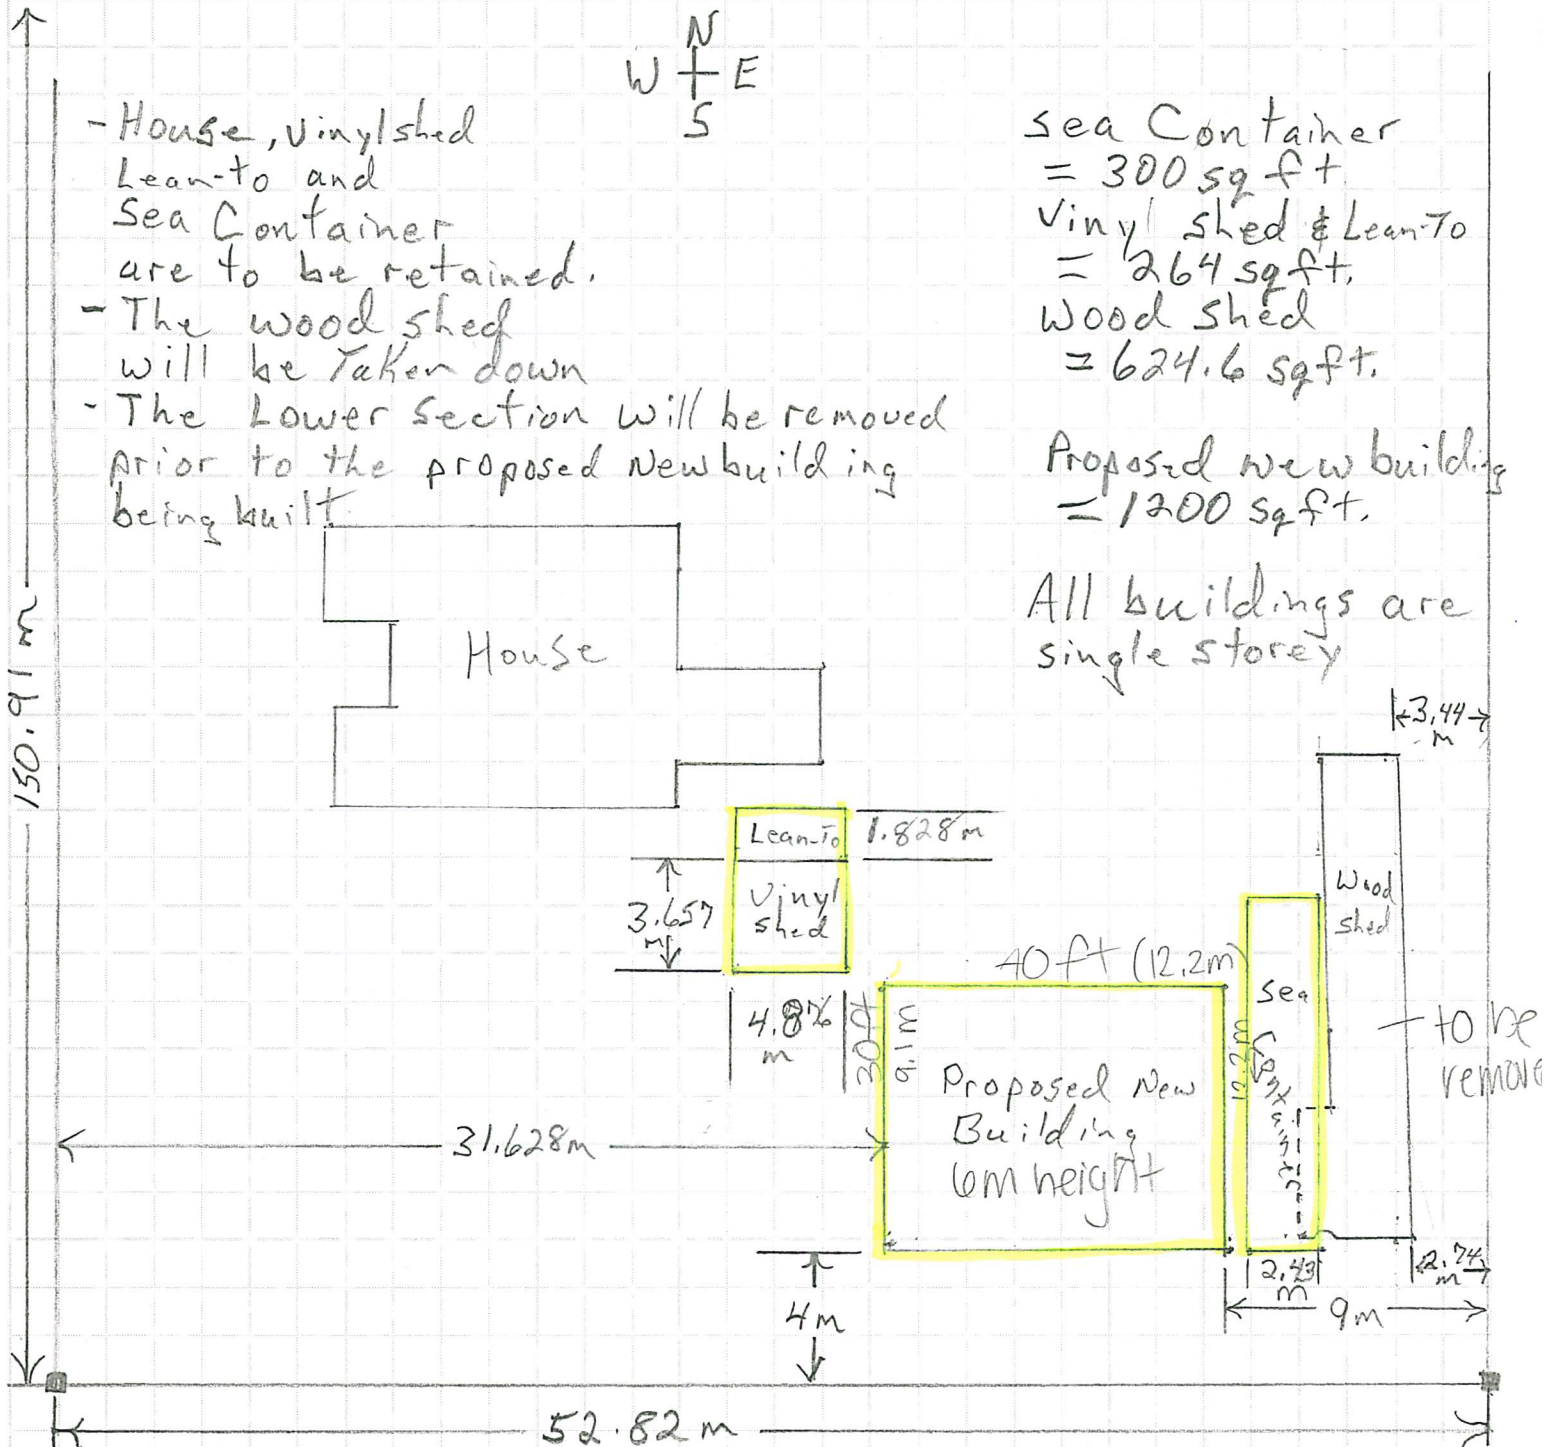 N
W E
S
- House, vinyl shed
Lean-to and
Sea Container
are to be retained.
- The wood shed
will be Taken down
- The Lower Section will be removed
prior to the proposed New building
being built.
sea Container
= 300 sq ft.
Vinyl shed & Lean-To
= 264 sq ft.
Wood shed
= 624.6 sq ft.
Proposed new building
= 1200 sq ft.
All buildings are
single storey
150.91 m
House
3.44
m
Lean-To
1.828m
Vinyl
shed
3.657
m
4.876
m
Wood
shed
40 ft (12.2m)
30 ft
9.1m
Sea
Container
12.2m
to be
remove
Proposed New
Building
6m height
31.628m
4m
2.43
m
2.74
m
9m
52.82 m